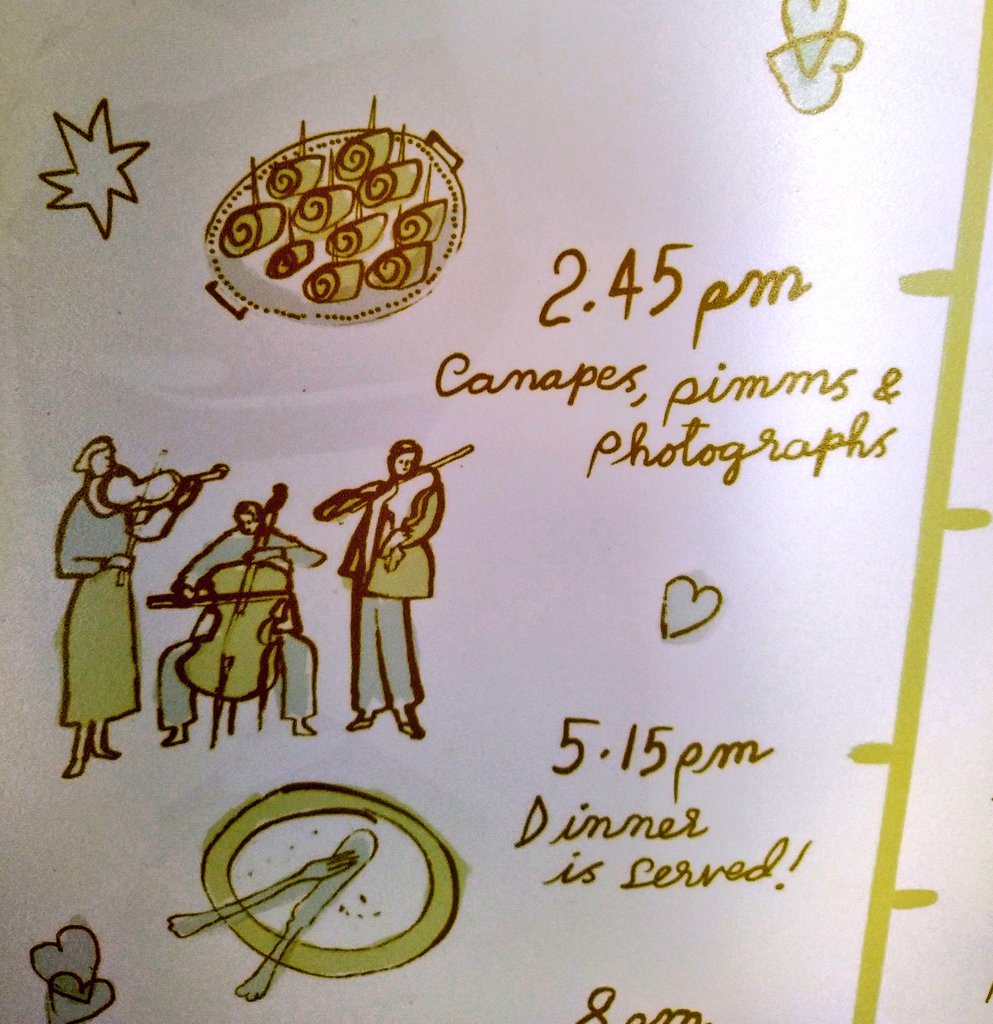 2.45pm
Canapes, pimms &
photographs
5.15pm
Dinner
is served!
8pm